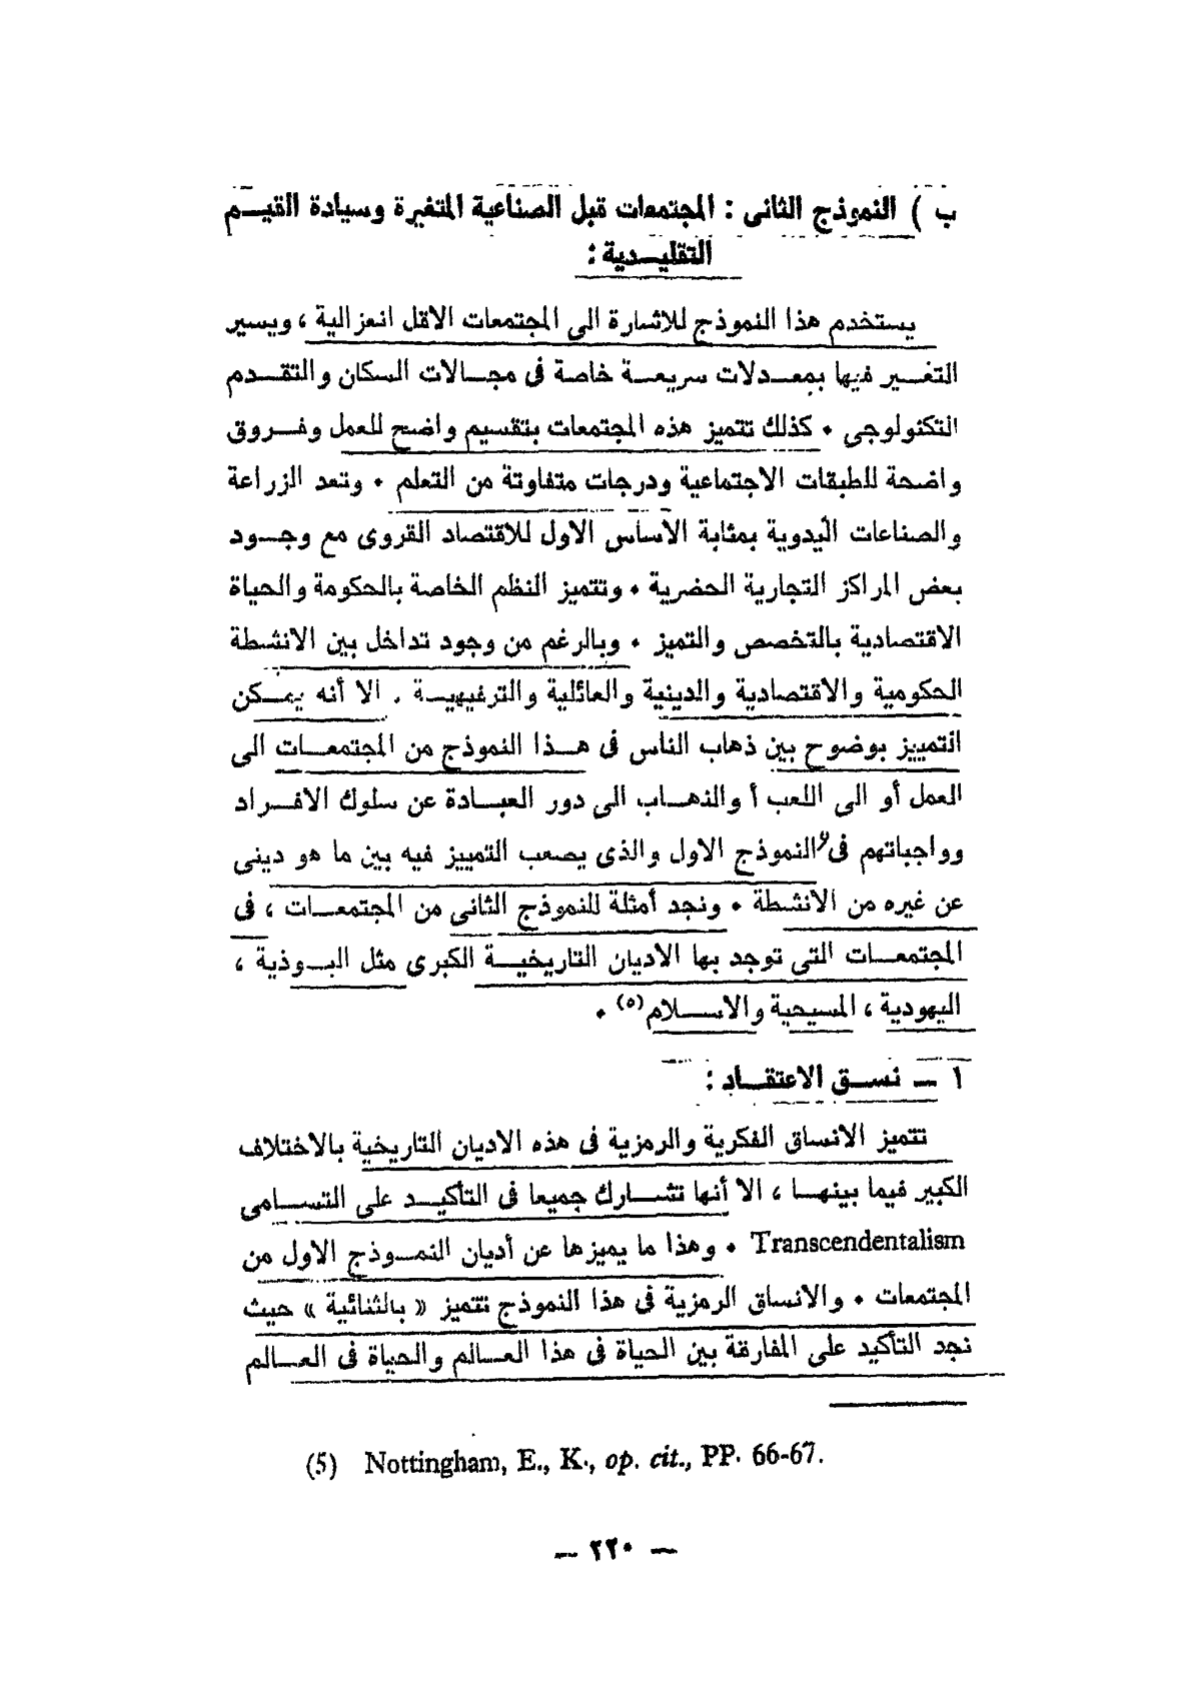 ب ) النموذج الثانى : المجتمعات قبل الصناعية المتغيرة وسيادة القيم
التقليدية :
يستخدم هذا النموذج للاشارة الى المجتمعات الاقل انعزالية ، ويسير
التغير فيها بمعدلات سريعة خاصة فى مجالات السكان والتقدم
التكنولوجى . كذلك تتميز هذه المجتمعات بتقسيم واضح للعمل وفروق
واضحة للطبقات الاجتماعية ودرجات متفاوتة من التعلم . وتعد الزراعة
والصناعات اليدوية بمثابة الأساس الاول للاقتصاد القروى مع وجود
بعض المراكز التجارية الحضرية . وتتميز النظم الخاصة بالحكومة والحياة
الاقتصادية بالتخصص والتميز . وبالرغم من وجود تداخل بين الانشطة
الحكومية والاقتصادية والدينية والعائلية والترفيهية . الا أنه يمكن
التمييز بوضوح بين ذهاب الناس فى هذا النموذج من المجتمعات الى
العمل أو الى اللعب أ والذهاب الى دور العبادة عن سلوك الافراد
وواجباتهم فى النموذج الاول والذى يصعب التمييز فيه بين ما هو دينى
عن غيره من الانشطة . ونجد أمثلة للنموذج الثانى من المجتمعات ، فى
المجتمعات التى توجد بها الاديان التاريخية الكبرى مثل البوذية ،
اليهودية ، المسيحية والاسلام(٥) .
١ — نسق الاعتقاد :
تتميز الانساق الفكرية والرمزية فى هذه الاديان التاريخية بالاختلاف
الكبير فيما بينها ، الا أنها تشارك جميعا فى التأكيد على التسامى
Transcendentalism . وهذا ما يميزها عن أديان النموذج الاول من
المجتمعات . والانساق الرمزية فى هذا النموذج تتميز « بالثنائية » حيث
نجد التأكيد على المفارقة بين الحياة فى هذا العالم والحياة فى العالم
(5) Nottingham, E., K., op. cit., PP. 66-67.
— ٢٢٠ —